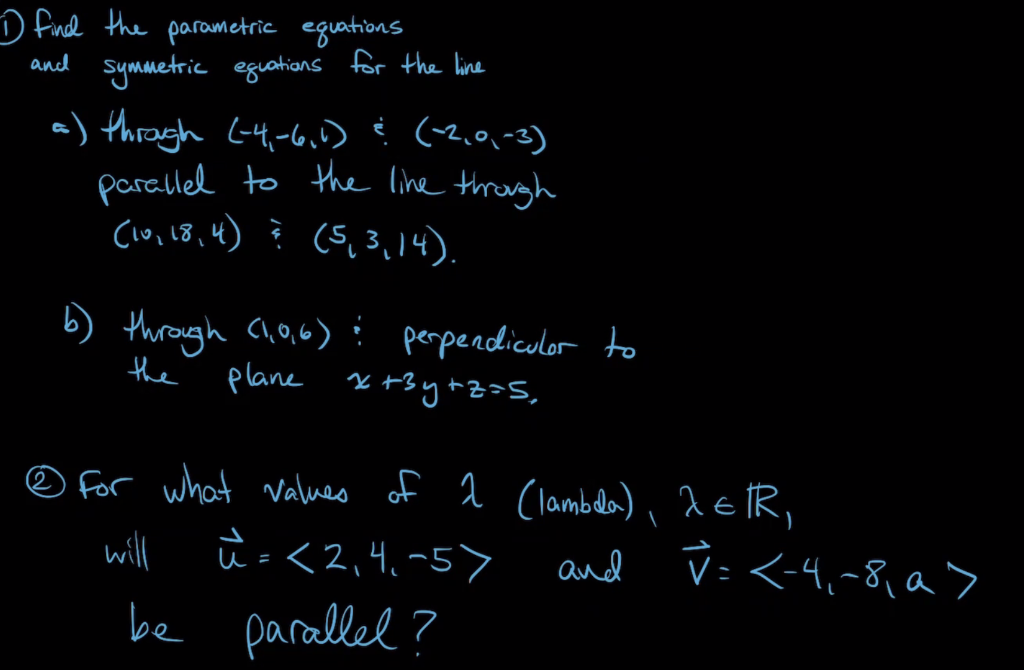 ① find the parametric equations
and symmetric equations for the line
a) through (-4,-6,1) & (-2,0,-3)
parallel to the line through
(10,18,4) & (5,3,14).
b) through (1,0,6) & perpendicular to
the plane x+3y+z=5.
② For what values of λ (lambda), λ∈ℝ,
will u⃗ = <2,4,-5> and v⃗ = <-4,-8,a>
be parallel?